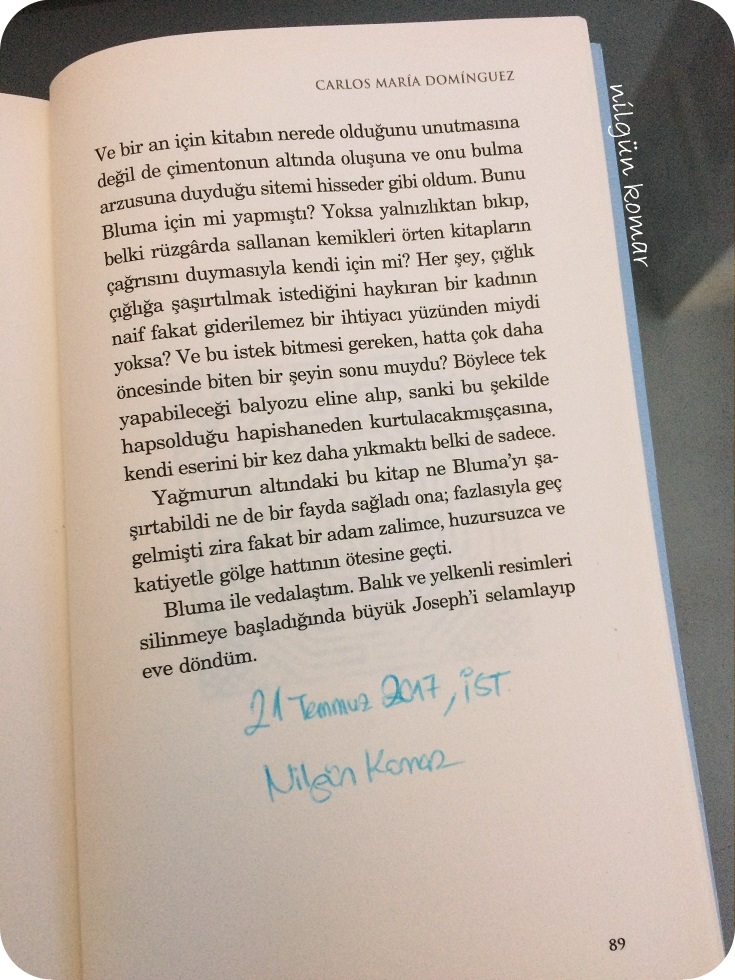 CARLOS MARÍA DOMÍNGUEZ
Ve bir an için kitabın nerede olduğunu unutmasına
değil de çimentonun altında oluşuna ve onu bulma
arzusuna duyduğu sitemi hisseder gibi oldum. Bunu
Bluma için mi yapmıştı? Yoksa yalnızlıktan bıkıp,
belki rüzgârda sallanan kemikleri örten kitapların
çağrısını duymasıyla kendi için mi? Her şey, çığlık
çığlığa şaşırtılmak istediğini haykıran bir kadının
naif fakat giderilemez bir ihtiyacı yüzünden miydi
yoksa? Ve bu istek bitmesi gereken, hatta çok daha
öncesinde biten bir şeyin sonu muydu? Böylece tek
yapabileceği balyozu eline alıp, sanki bu şekilde
hapsolduğu hapishaneden kurtulacakmışçasına,
kendi eserini bir kez daha yıkmaktı belki de sadece.
Yağmurun altındaki bu kitap ne Bluma'yı şa-
şırtabildi ne de bir fayda sağladı ona; fazlasıyla geç
gelmişti zira fakat bir adam zalimce, huzursuzca ve
katiyetle gölge hattının ötesine geçti.
Bluma ile vedalaştım. Balık ve yelkenli resimleri
silinmeye başladığında büyük Joseph'i selamlayıp
eve döndüm.
21 Temmuz 2017, İST.
Nilgün Komar
89
nilgün komar